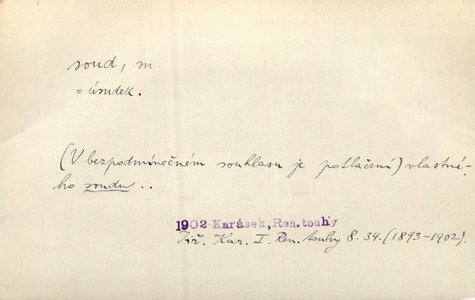 soud, m.
= úsudek.
(V bezpodmínečném souhlasu je potlačení) vlastní-
ho soudu ..
1902 Karásek, Ren. touhy
Jiř. Kar. I. Ren. touhy 8. 34. (1893-1902).